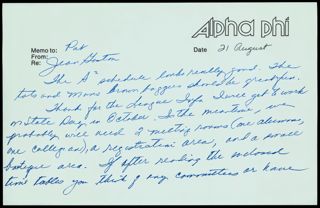 Alpha Phi
Memo to: Pat
From: Jean Gunston
Date 21 August
Re:
The A² schedule looks really good. The
tots and Moms brown baggies should be greatfun.
Thank for the League Info. I will get & work
on State Day in October. In the meantime, we
probably will need 2 meeting rooms (one alumnae,
one collegian), a registration area, and a small
boutique area. If after reading the enclosed
time tables you think of any committees or have